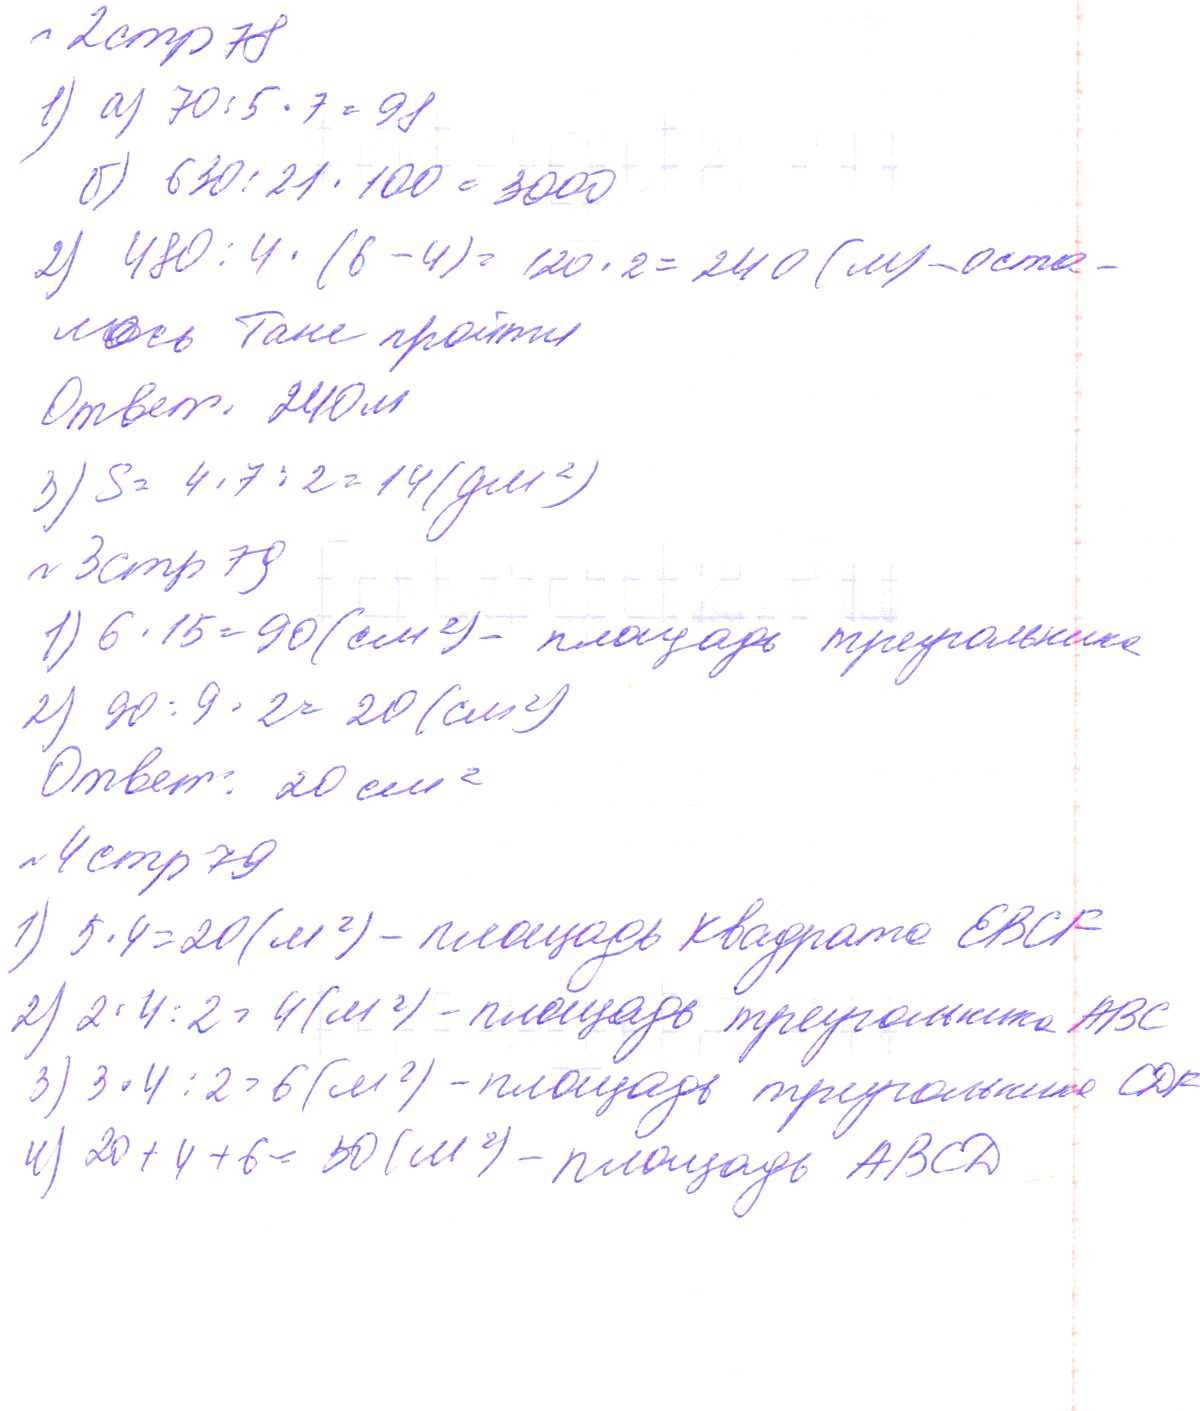 № 2 стр 78
1) а) 70 : 5 · 7 = 98
б) 630 : 21 · 100 = 3000
2) 480 : 4 · (6 - 4) = 120 · 2 = 240 (м) - оста-
лось Тане пройти
Ответ: 240 м
3) S = 4 · 7 : 2 = 14 (дм²)
№ 3 стр 79
1) 6 · 15 = 90 (см²) - площадь треугольника
2) 90 : 9 · 2 = 20 (см²)
Ответ: 20 см²
№ 4 стр 79
1) 5 · 4 = 20 (м²) - площадь квадрата EBCF
2) 2 · 4 : 2 = 4 (м²) - площадь треугольника ABC
3) 3 · 4 : 2 = 6 (м²) - площадь треугольника CDF
4) 20 + 4 + 6 = 30 (м²) - площадь ABCD